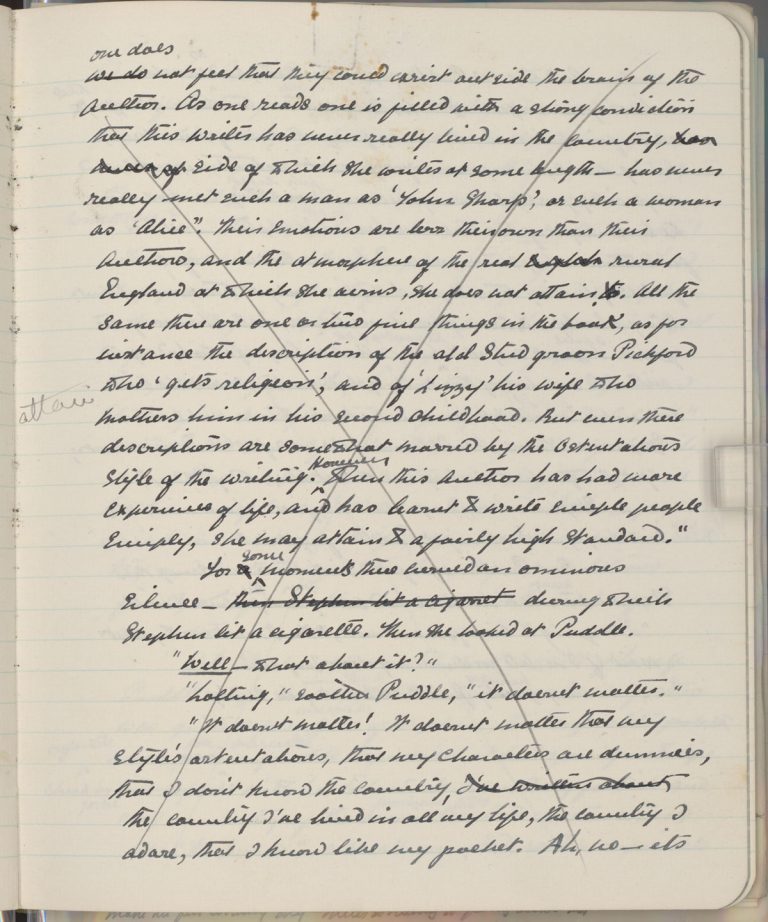 one does
we do not feel that they could exist outside the brain of the
Author. As one reads one is filled with a strong conviction
that this writer has never really lived in the country,
side of which she writes at some length – has never
really met such a man as 'John Sharp', or such a woman
as 'Alice". Their emotions are less their own than their
Authors, and the atmosphere of the real rural
England at which she aims, she does not attain to. All the
same there are one or two fine things in the book, as for
instance the description of the old Stud groom Pickford
who 'gets religeon', and of 'Lizzy' his wife who
attain
mothers him in his second childhood. But even these
descriptions are somewhat marred by the ostentatious
However
style of the writing. When this Author has had more
experience of life, and has learnt to write simple people
simply, she may attain to a fairly high standard."
some
For a moments there were an ominous
silence – then Stephen lit a cigaret during which
Stephen lit a cigarette. Then she looked at Puddle.
"Well – what about it?"
"Nothing," soothed Puddle, "it doesnt matter."
"It doesn't matter! It doesnt matter that my
style's ostentatious, that my characters are dummies,
that I don't know the country, I've written about
the country I've lived in all my life, the country I
adore, that I know like my pocket. Ah, no – its